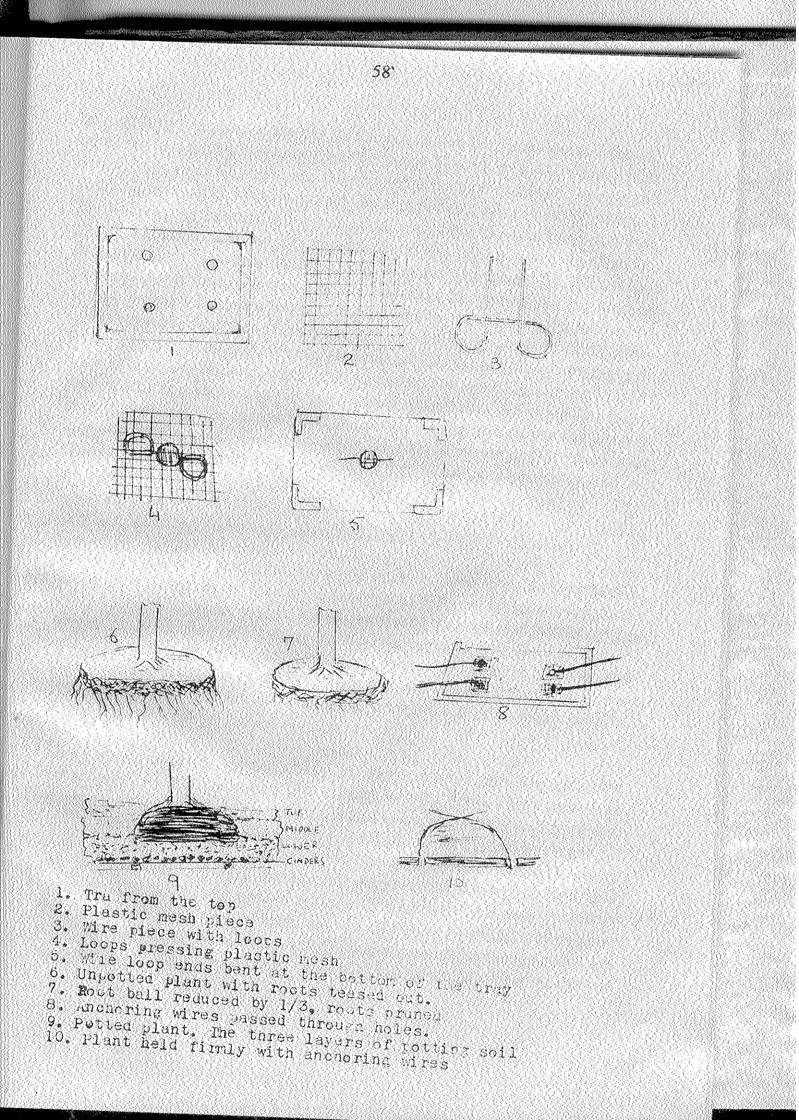 58
1
2
3
4
5
6
7
8
TOP
MIDDLE
LOWER
CINDERS
9
10
1. Tra from the top
2. Plastic mesh piece
3. Wire piece with loops
4. Loops pressing plastic mesh
5. Wire loop ends bent at the bottom of the tray
6. Unpotted plant with roots teased out.
7. Root ball reduced by 1/3, roots pruned
8. Anchoring wires passed through holes.
9. Potted plant. The three layers of potting soil
10. Plant held firmly with anchoring wires